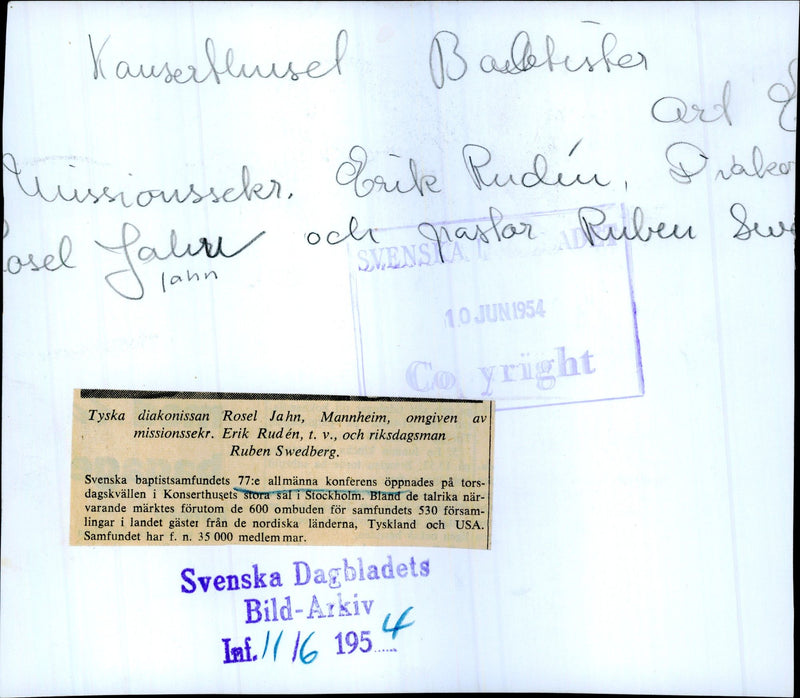 Konserthuset Babtister
Art E
Missionssekr. Erik Rudén, Diako
osel Jahn och pastor Ruben Swe
Jahn
SVENSKA DAGBLADET
10 JUN 1954
Co yright
Tyska diakonissan Rosel Jahn, Mannheim, omgiven av
missionssekr. Erik Rudén, t. v., och riksdagsman
Ruben Swedberg.
Svenska baptistsamfundets 77:e allmänna konferens öppnades på tors-
dagskvällen i Konserthusets stora sal i Stockholm. Bland de talrika när-
varande märktes förutom de 600 ombuden för samfundets 530 försam-
lingar i landet gäster från de nordiska länderna, Tyskland och USA.
Samfundet har f. n. 35 000 medlemmar.
Svenska Dagbladets
Bild-Arkiv
Inf. 11/6 1954